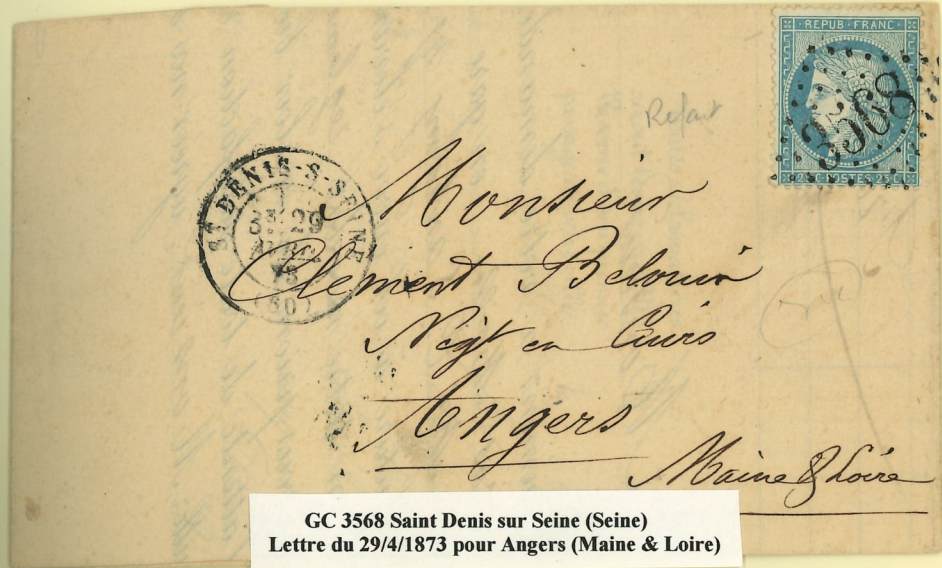 REPUB·FRANC·
3568
25 C·POSTES·25 C
Refait
ST DENIS-S-SEINE
3E 29
AVRIL
73
(60)
Monsieur
Clément Belouin
Négt en Cuirs
Angers
Maine & Loire
GC 3568 Saint Denis sur Seine (Seine)
Lettre du 29/4/1873 pour Angers (Maine & Loire)